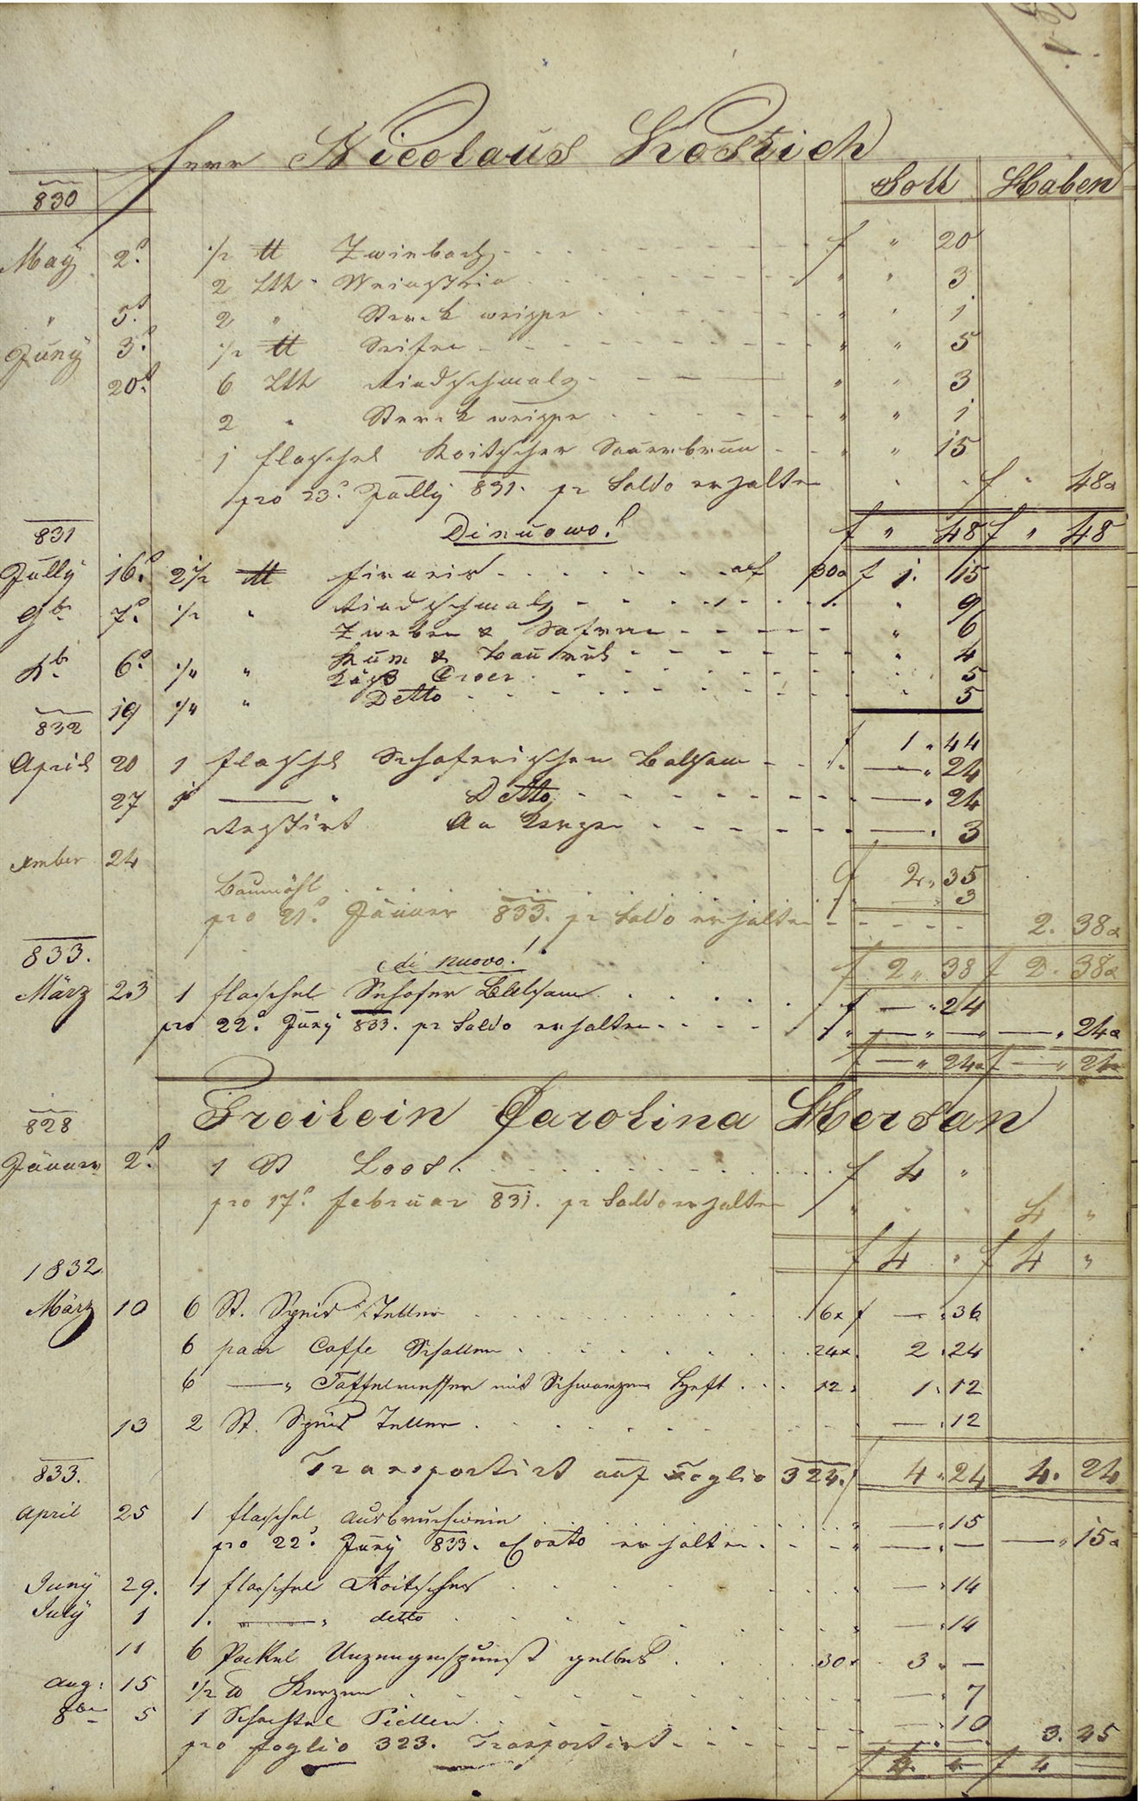 Herr Nicolaus Kostich
Soll Haben
830
May 2. 1/2 ℔ Zwiebach f " 20
2 Lth " 3
" 5. 2 " Sterck " 1
Juny 3. 1/2 ℔ Seifen " " 5
20. 6 Lth Rindschmalz " " 3
2 " Sterck " " 1
1 flaschel Roitscher Sauerbrun " 15
pro 23. Jully 831. pr Saldo erhalten f " 48
Dinuowo! f " 48 f " 48
831
Jully 16. 2 1/2 ℔ firneis 30 f 1. 15
9br 7. 1/2 " Rindschmalz " 9
Zweben & Safran " 6
Xbr 6. 1/4 " Rum & " 4
5
19 1/4 " Detto 5
832
1 " 44
April 20 1 flaschl Schoferischen Balsam — " 24
27 1 — " Detto — " 24
Restirt An Kerzen — " 3
ember 24 f 2 " 35
Baumöhl — 3
pro 21. Jänner 833. pr Saldo erhalten 2. 38
833. di nuovo! f 2 " 38 f 2. 38
März 23 1 flaschel Schofer Balsam f — " 24
pro 22. Juny 833. pr Saldo erhalten — " 24
f — " 24 f — " 24
Freilein Carolina Mersan
828
Jänner 2. 1 St Loos f 4 "
pro 17. februar 831. pr Saldo erhalten 4 "
f 4 " f 4 "
1832
März 10 6 St. Speis Teller 6x f — " 36
6 paar Caffe Schallen 24x 2 " 24
6 — " Taffelmesser mit Schwarzen Heft 12 " 1 " 12
13 2 St. Speis Teller — " 12
Transportirt auf Foglio 324. f 4 " 24 4. 24
833.
April 25 1 flaschel Ausbruchwein — " 15
pro 22. Juny 833. Conto erhalten — " — — " 15
Juny 29. 1 flaschel Roitscher — " 14
July 1 1. — " detto — " 14
11 6 Packel gelbes 30x 3 " —
Aug: 15 1/2 ℔ Kerzen — " 7
8br 5 1 Schachtel Piellen — " 10
pro foglio 323. Trasportirt 3. 45
f 4. " f 4